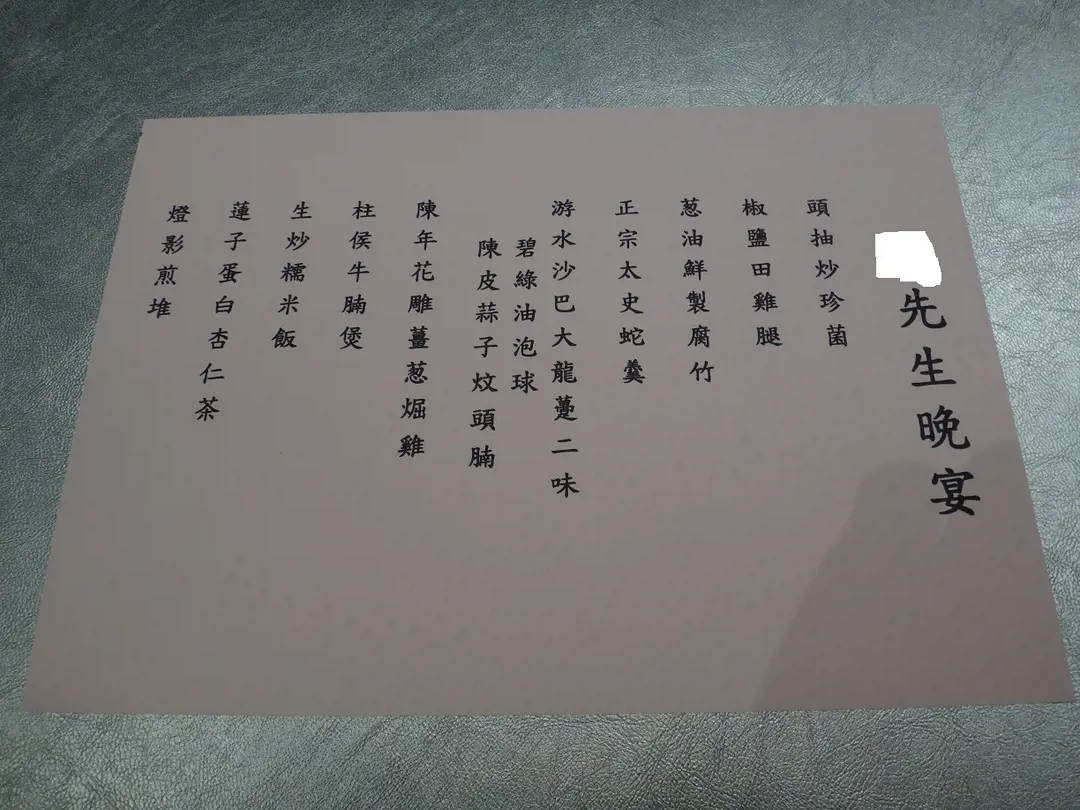 先生晚宴
頭抽炒珍菌
椒鹽田雞腿
葱油鮮製腐竹
正宗太史蛇羹
游水沙巴大龍躉二味
碧綠油泡球
陳皮蒜子炆頭腩
陳年花雕薑葱焗雞
柱侯牛腩煲
生炒糯米飯
蓮子蛋白杏仁茶
燈影煎堆